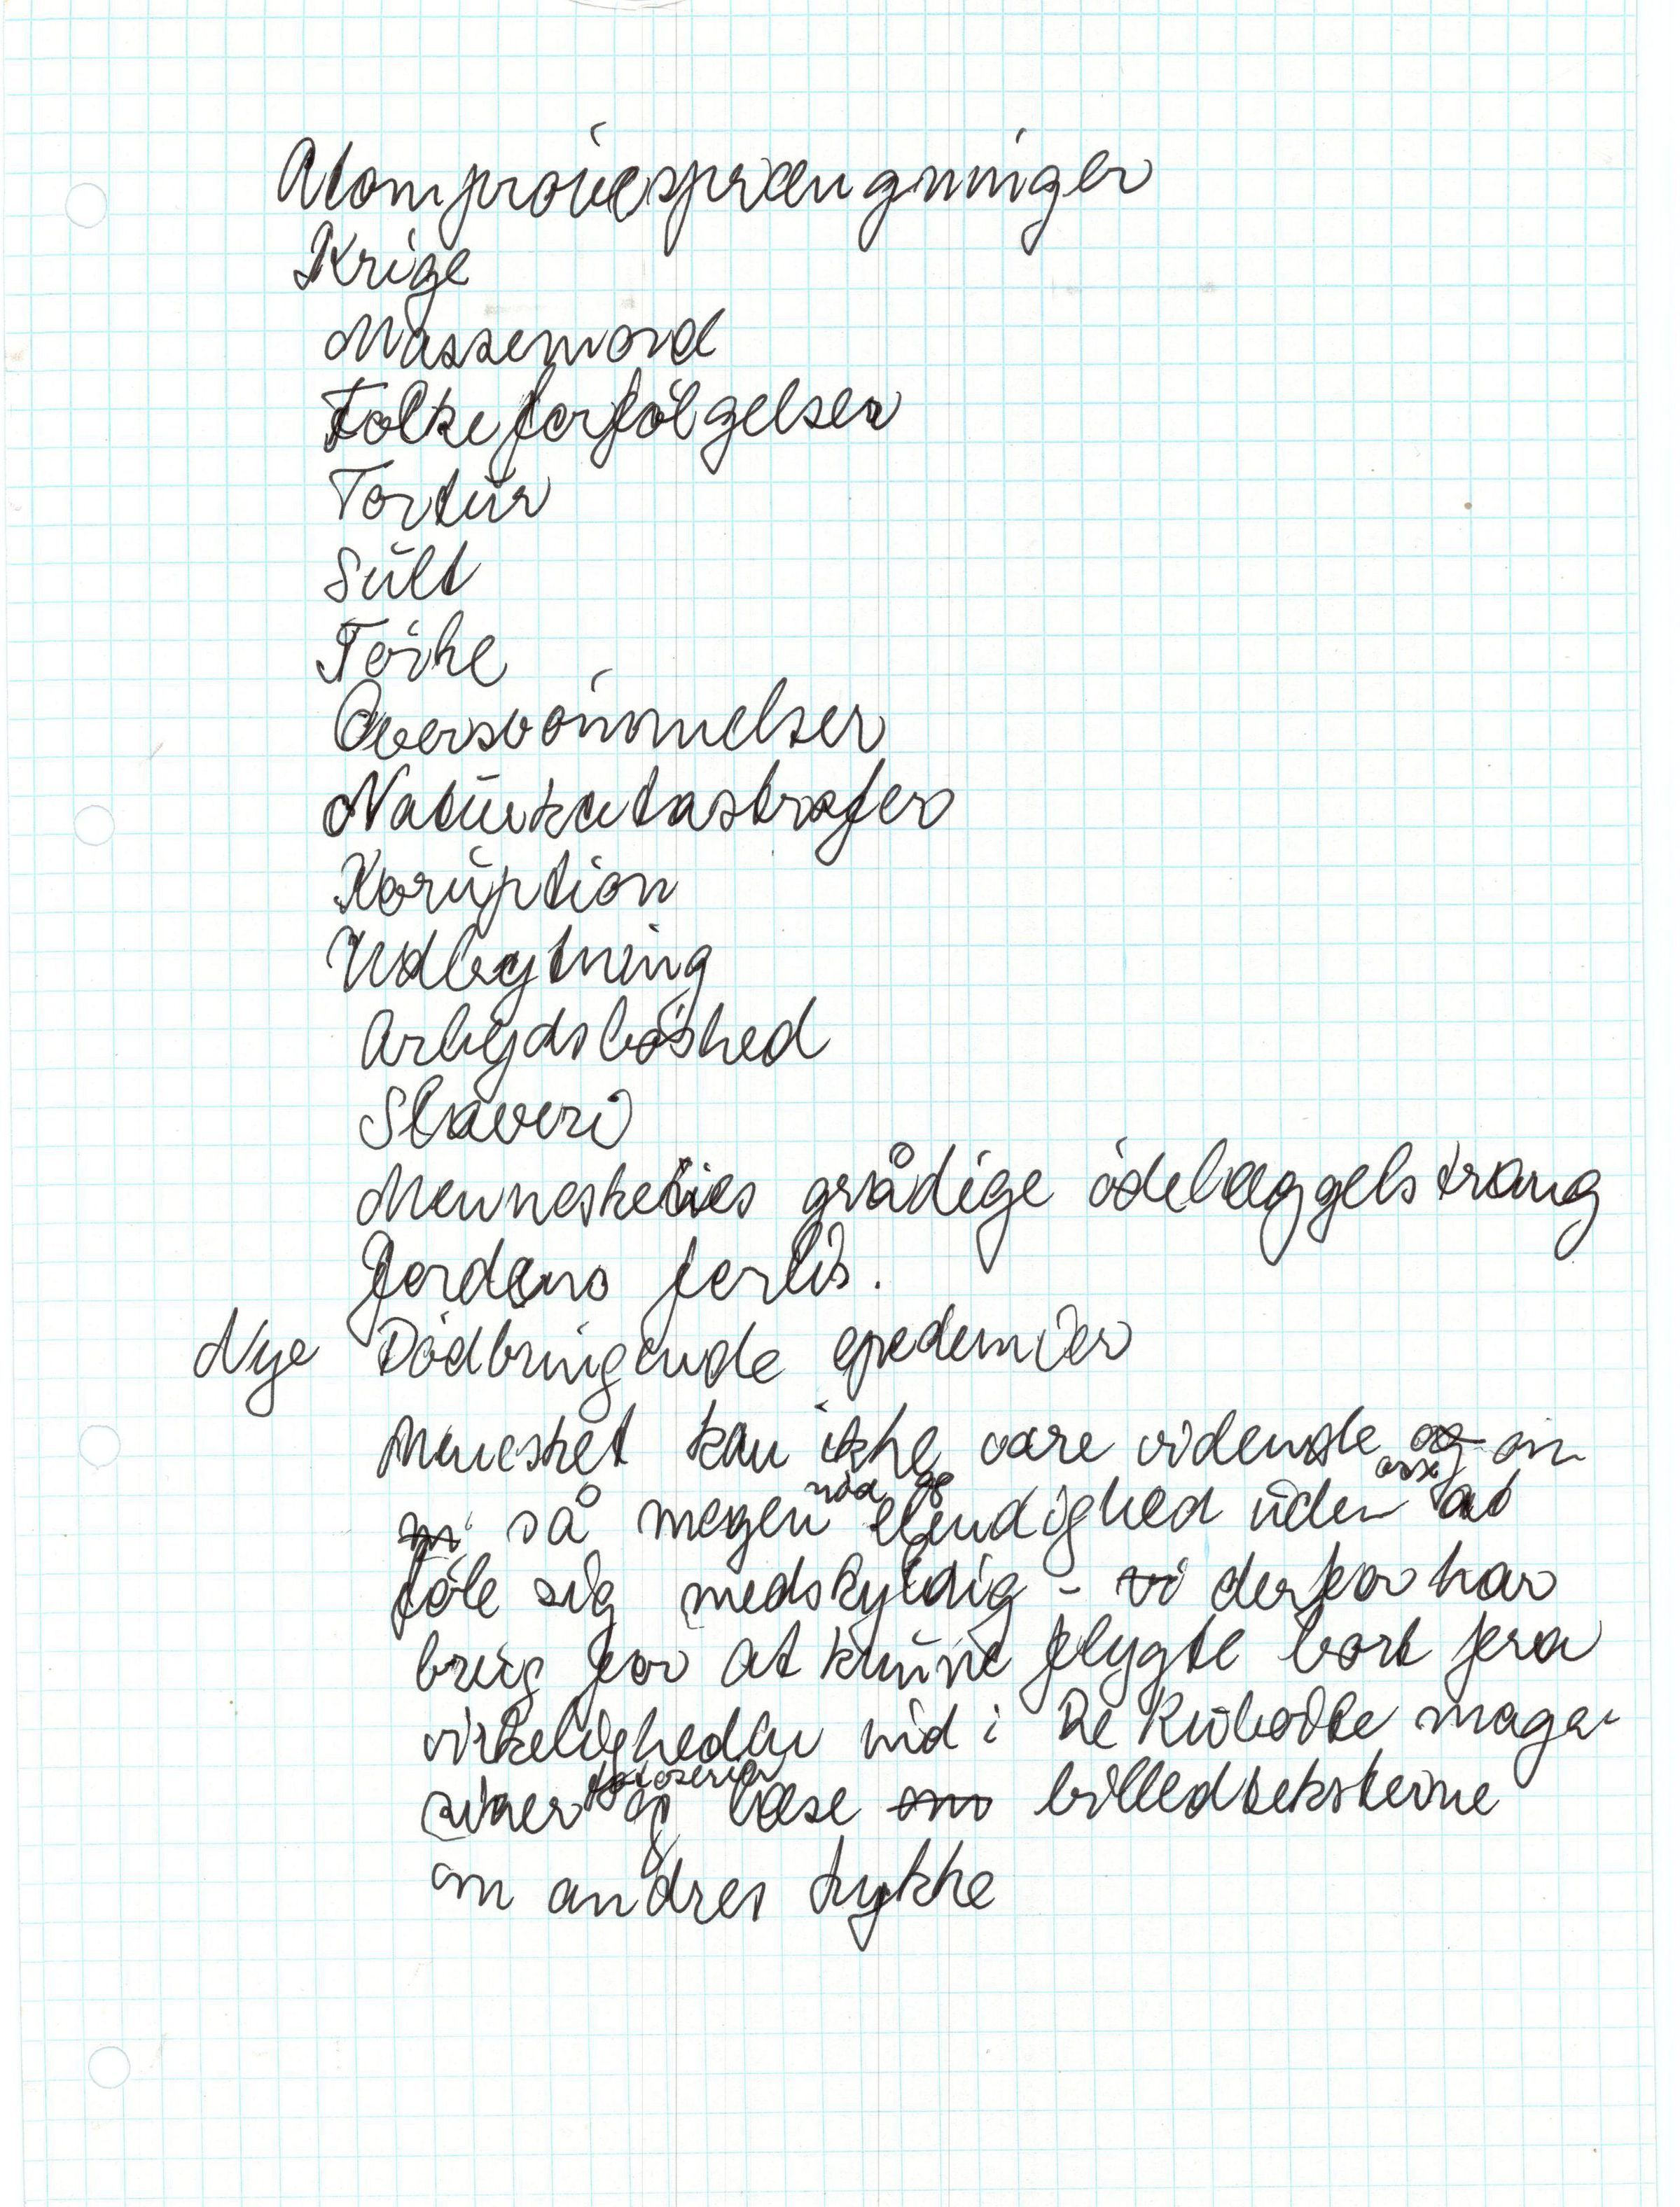 Atomprövesprængninger
Krige
Massemord
Folkeforfölgelser
Tortur
Sult
Törke
Oversvömmelser
Naturkatastrofer
Koruption
Udbytning
Arbejdslöshed
Slaveri
Menneskenes grådige ödelæggelstrang
Jordens forlis.
Nye Dödbringende epedemier
Menesket kan ikke være vidende og om
så megen nöd og elendighed uden at
föle sig medskyldig - vi derfor har
brug for at kunne flygte bort fra
virkeligheden ind i De Kulörte maga-
siner fotoserier og læse om billedteksterne
om andres lykke